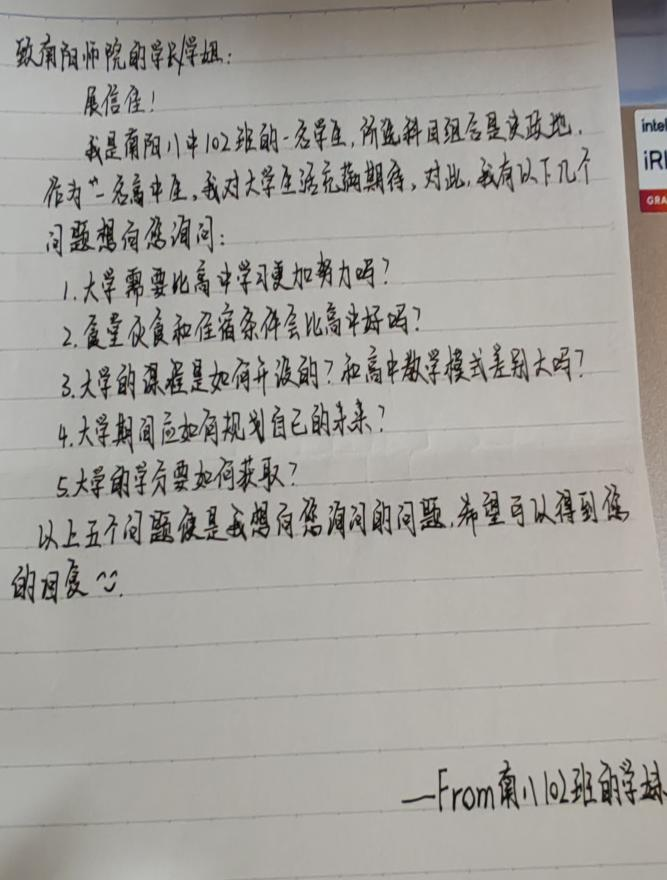 致南阳师院的学长/学姐:
展信佳!
我是南阳八中102班的一名学生,所选科目组合是史政地.
作为一名高中生,我对大学生活充满期待,对此,我有以下几个
问题想向您询问:
1.大学需要比高中学习更加努力吗?
2.食堂伙食和住宿条件会比高中好吗?
3.大学的课程是如何开设的?和高中教学模式差别大吗?
4.大学期间应如何规划自己的未来?
5.大学的学分要如何获取?
以上五个问题便是我想向您询问的问题,希望可以得到您
的回复
—From南八102班的学妹
intel
iRI
GRA